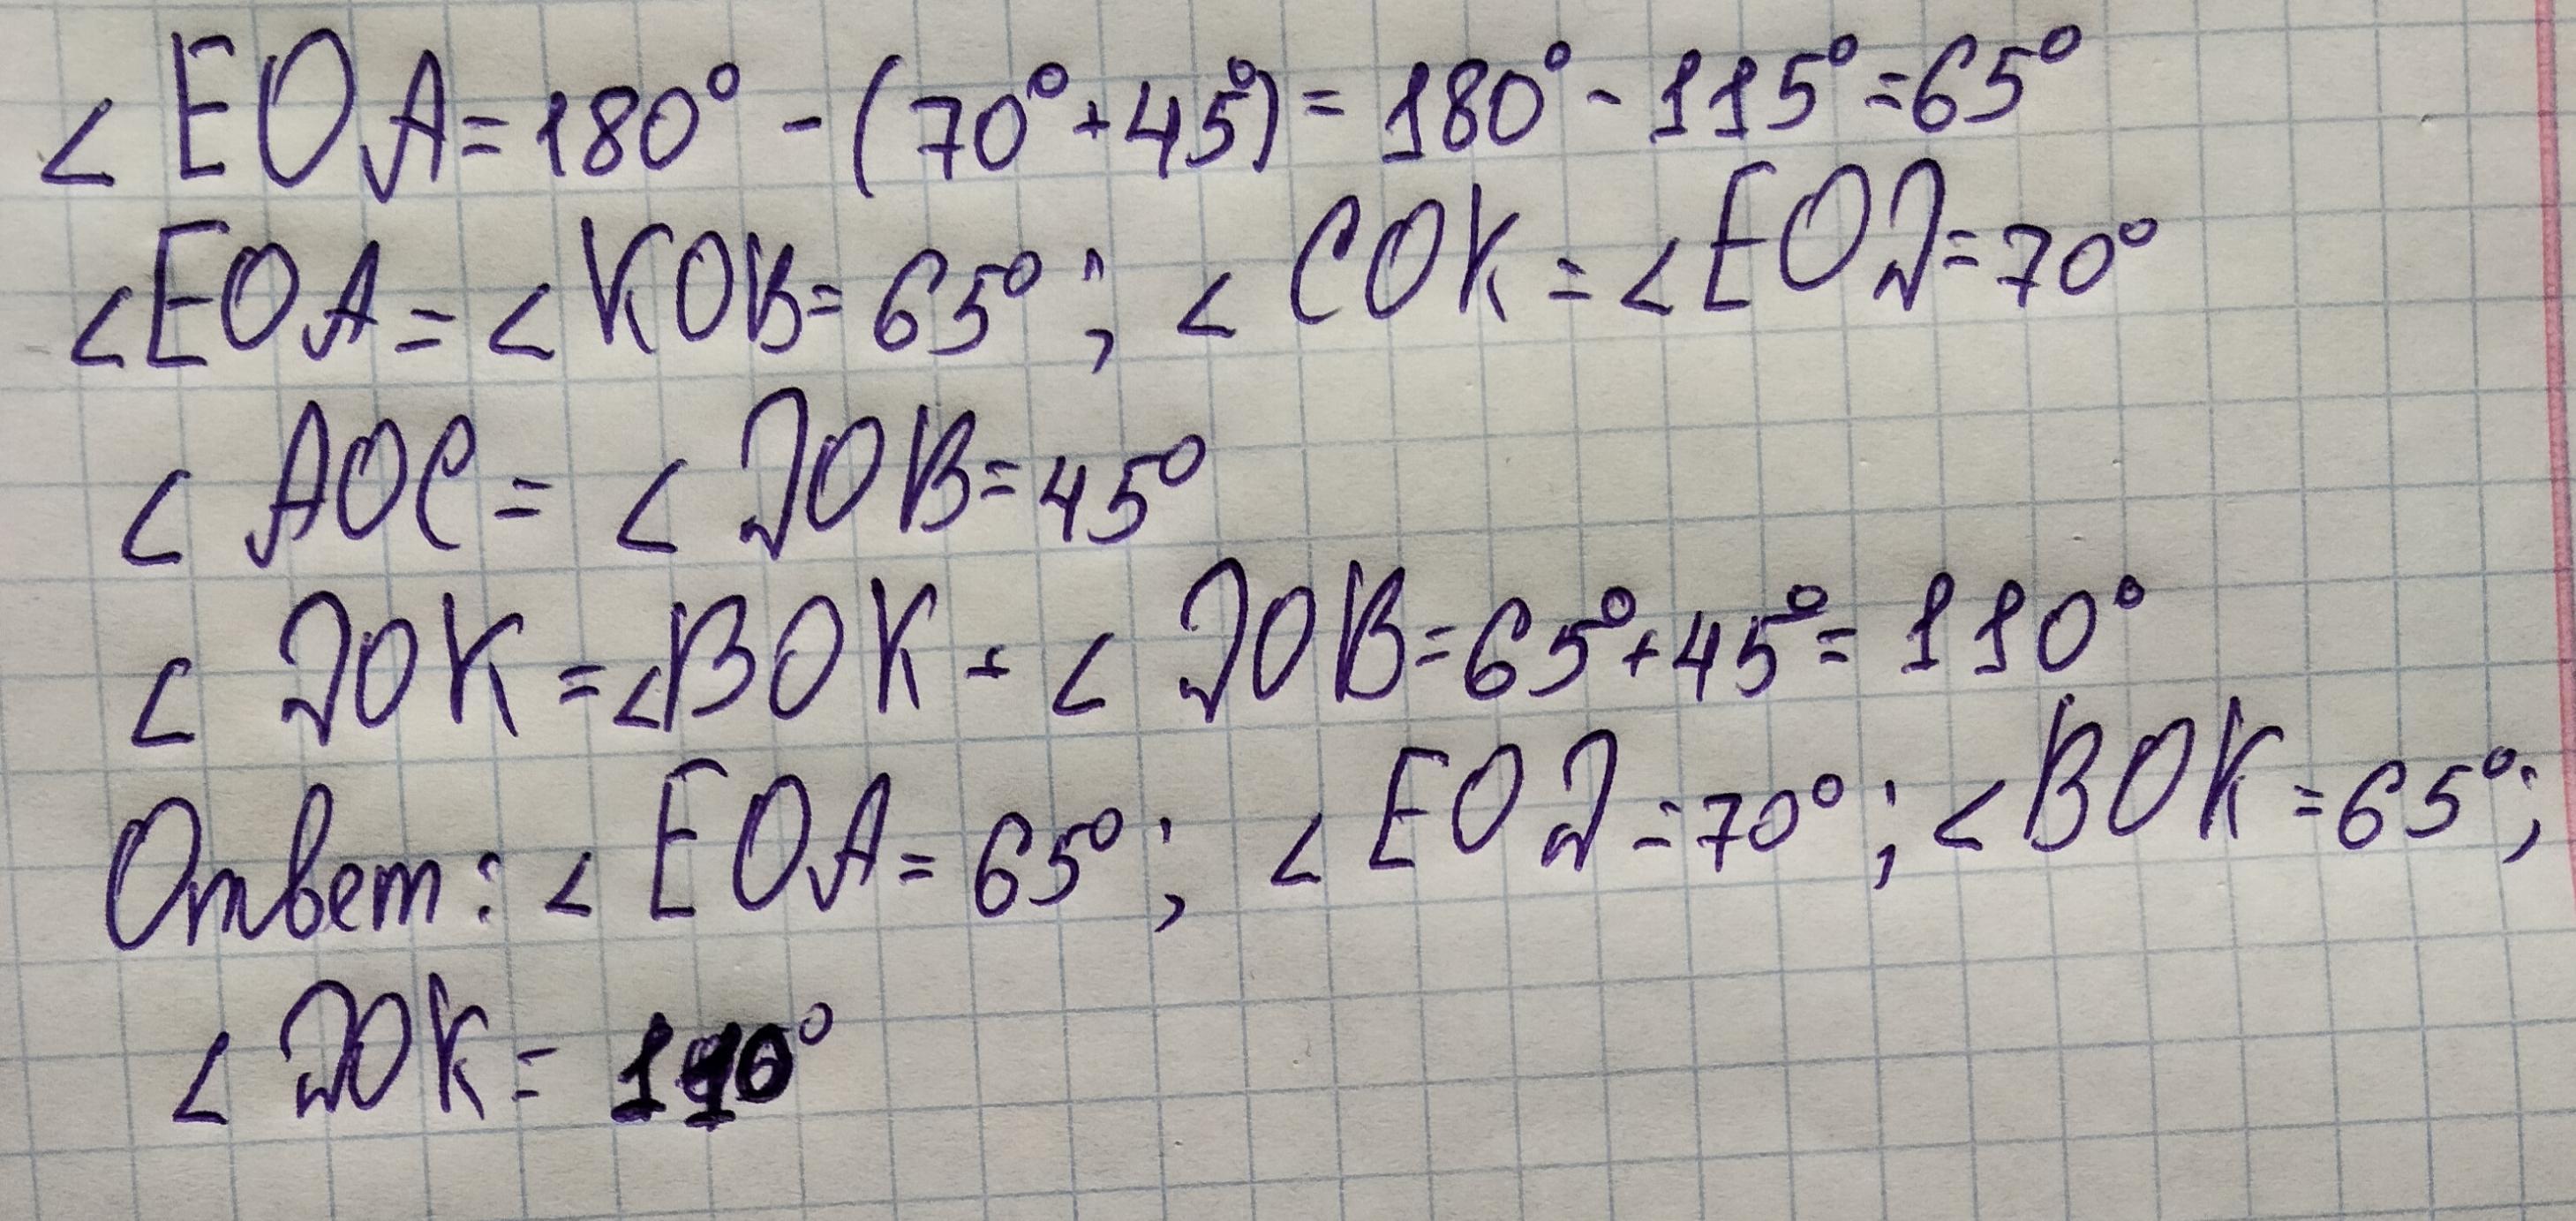 ∠EOA=180°-(70°+45°)=180°-115°=65°
∠EOA=∠KOB=65°; ∠COK=∠EOД=70°
∠AOC=∠ДOB=45°
∠ДOK=∠BOK+∠ДOB=65°+45°=110°
Ответ: ∠EOA=65°; ∠EOД=70°; ∠BOK=65°;
∠ДOK=110°